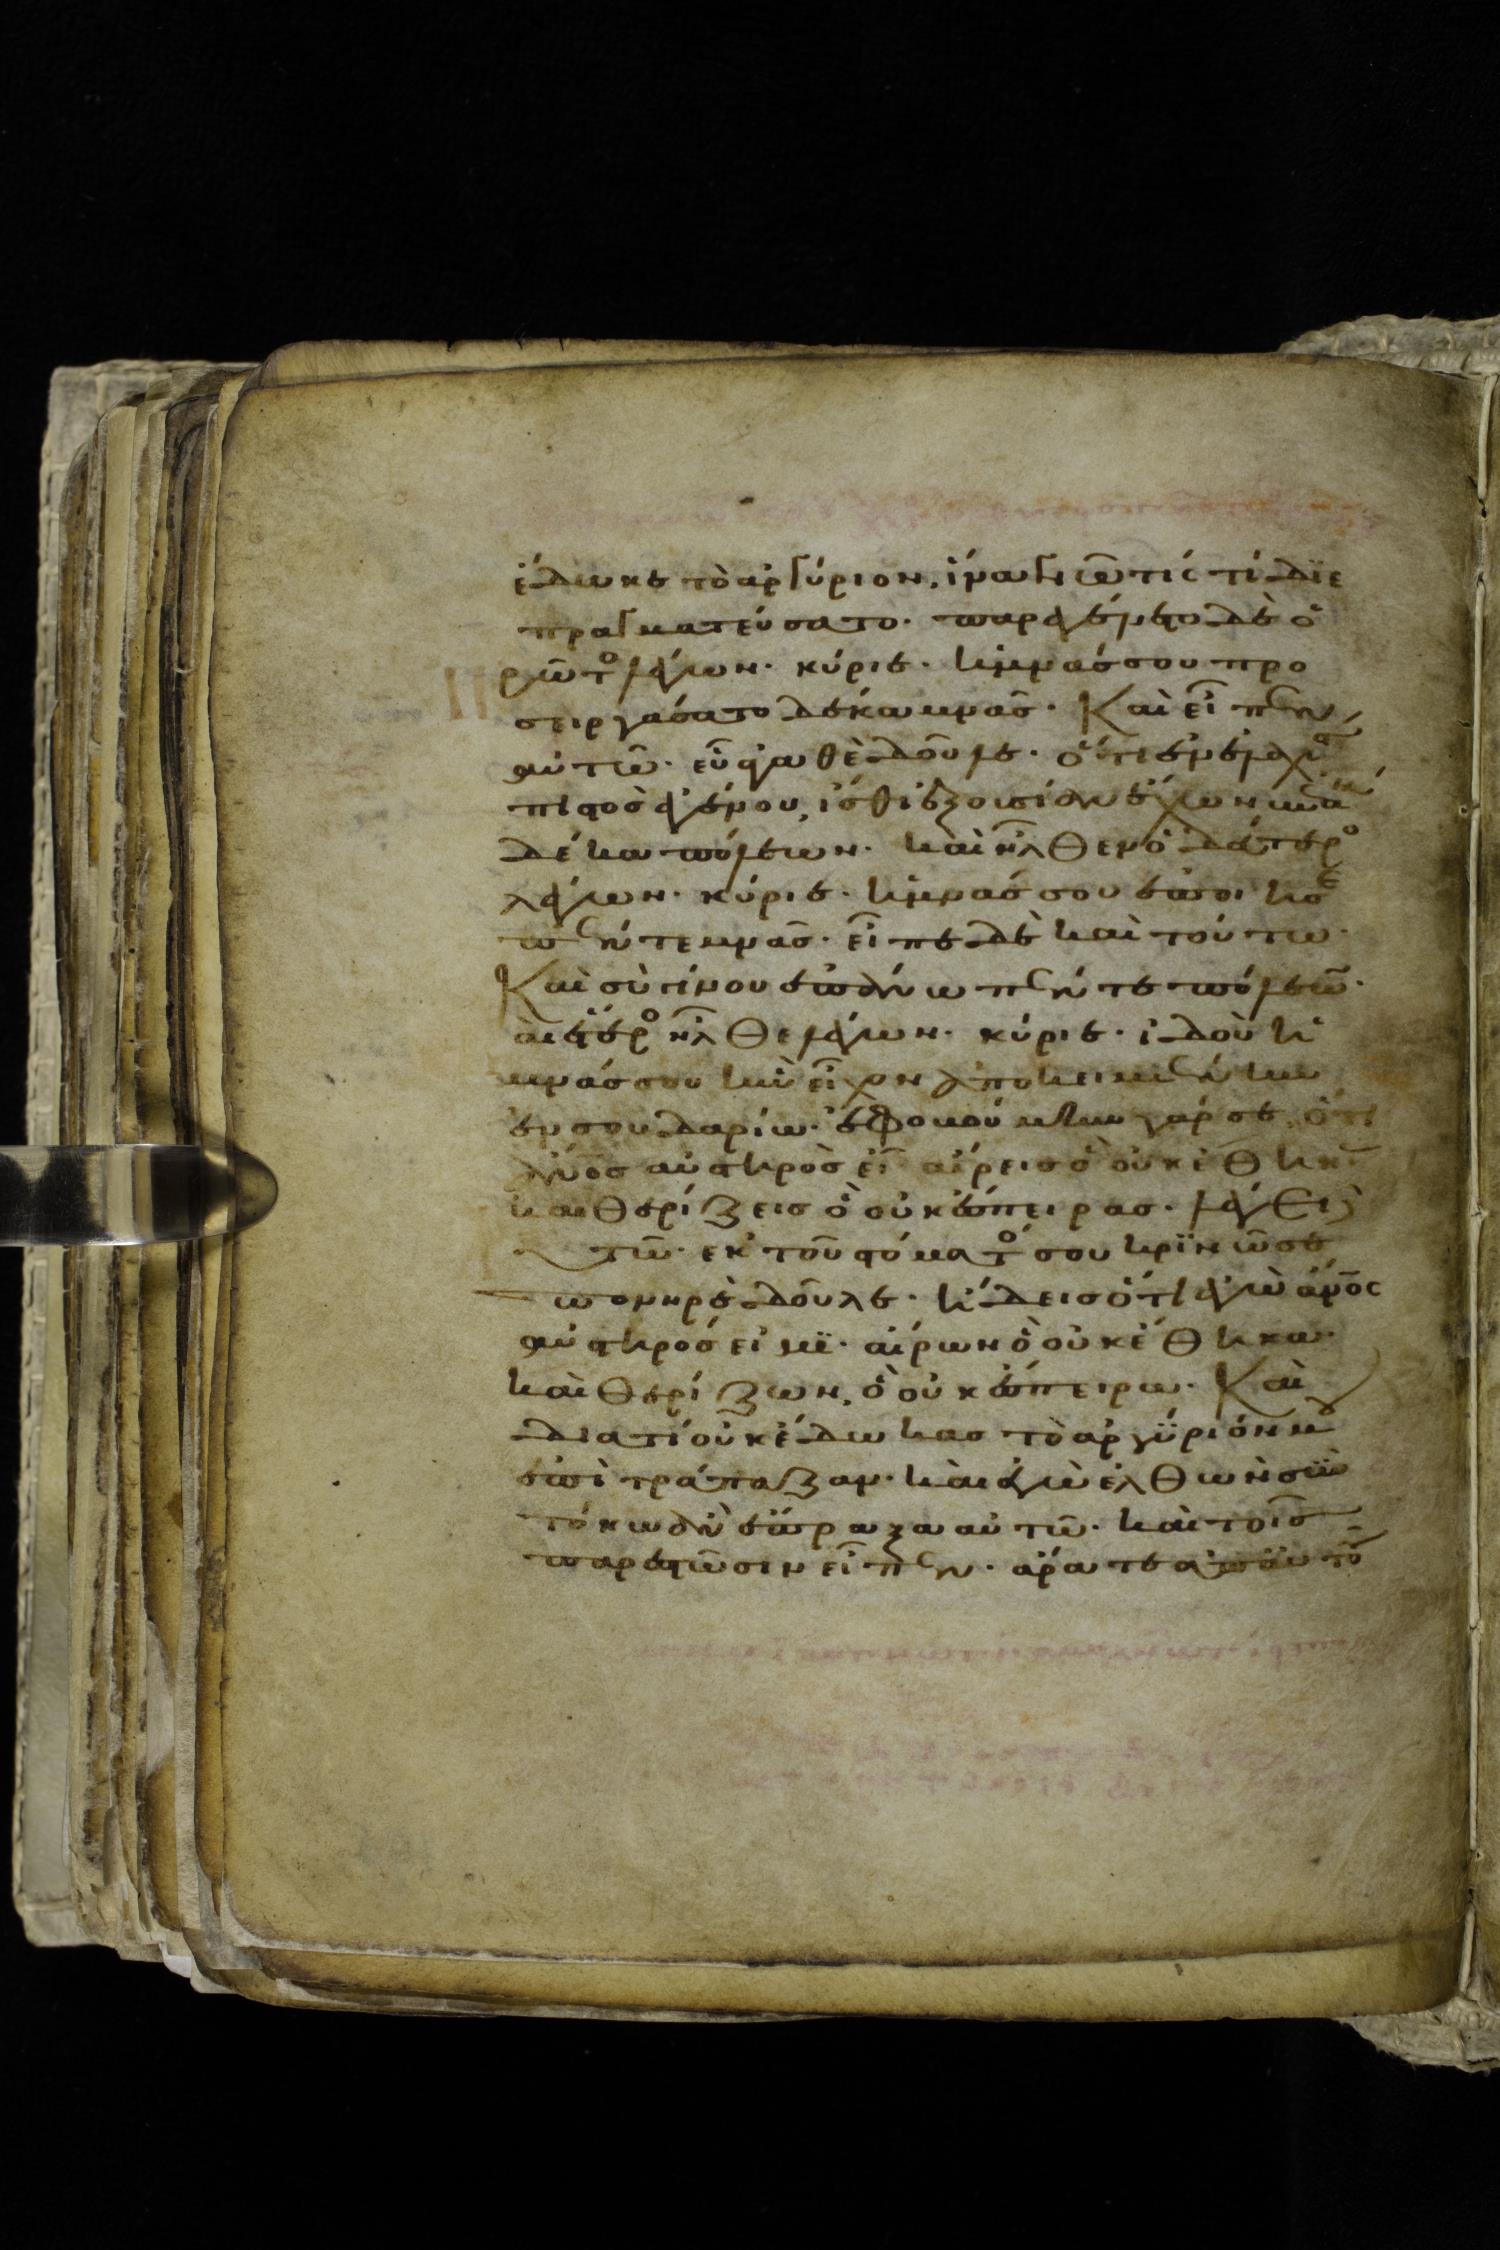 ἔδωκε τὸ ἀργύριον, ἵνα γνῶ τίς τί διε
πραγματεύσατο. παρεγένετο δὲ ὁ
ρῶτος λέγων. κύριε. ἡ μνᾶ σου προ
σειργάσατο δέκα μνᾶς. Καὶ εἶπεν
αὐτῶ. εὖ ἀγαθὲ δοῦλε. ὅτι ἐν ἐλαχ
πιστὸς ἐγένου, ἴσθι ἐξουσίαν ἔχων ἐπάνω
δέκα πόλεων. καὶ ἦλθεν ὁ δεύτερο
λέγων. κύριε. ἡ μνᾶ σου ἐποίησε
πέντε μνᾶς. εἶπε δὲ καὶ τούτω.
Καὶ σὺ γίνου ἐπάνω πέντε πόλεω.
αι ἕτερο ἦλθε λέγων. κύριε. ἰδοὺ ἡ
μνᾶ σου ἣν εἶχον ἀποκειμένην
ἐν σουδαρίω. ἐφοβούμην γάρ σε, ὅτι
ἄνος αὐστηρὸς εἶ αἴρεις ὃ οὐκ ἔθηκ
καὶ θερίζεις ὃ οὐκ ἔσπειρας. λέγει
τῶ. ἐκ τοῦ στόματος σου κρινῶ σε
πονηρὲ δοῦλε. ἤδεις ὅτι ἐγὼ ἄνος
αὐστηρός εἰμι. αἴρων ὃ οὐκ ἔθηκα.
καὶ θερίζων, ὃ οὐκ ἔσπειρα. Καὶ
διατί οὐκ ἔδωκας τὸ ἀργύριόν μου
ἐπὶ τράπεζαν. καὶ ἐγὼ ἐλθὼν σὺν
τόκω ἂν ἔπραξα αὐτῶ. καὶ τοῖς
παρεστῶσιν εἶπεν. ἄρατε ἀπ αὐτοῦ